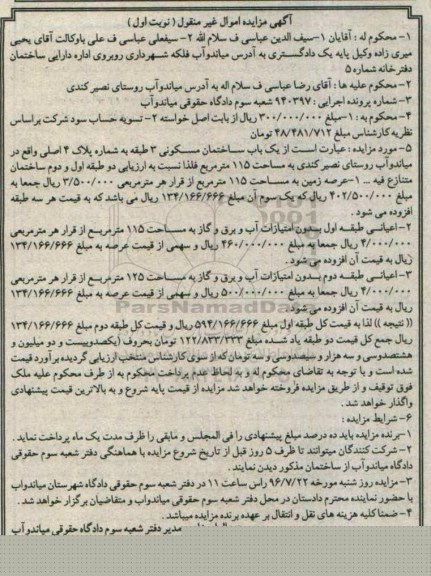 آگهی مزایده اموال غیر منقول ( نوبت اول )
۱- محکوم له : آقایان ۱-سیف الدین عباسی ف سلام الله ۲- سیفعلی عباسی ف علی باوکالت آقای یحیی
میری زاده وکیل پایه یک دادگستری به آدرس میاندوآب فلکه شهرداری روبروی اداره دارایی ساختمان
دفترخانه شماره ۵
۲- محکوم علیه ها : آقای رضا عباسی ف سلام اله به آدرس میاندوآب روستای نصیر کندی
۳- شماره پرونده اجرایی : ۹۴۰۳۹۷ شعبه سوم دادگاه حقوقی میاندوآب
۴- محکوم به : ۱-مبلغ ۳۰۰/۰۰۰/۰۰۰ ریال از بابت اصل خواسته ۲- تسویه حساب سود شرکت براساس
نظریه کارشناس مبلغ ۴۸/۴۸۱/۷۱۲ تومان
۵- مورد مزایده : عبارت است از یک باب ساختمان مسکونی ۳ طبقه به شماره پلاک ۴ اصلی واقع در
میاندوآب روستای نصیر کندی به مساحت ۱۱۵ مترمربع فلذا نسبت به ارزیابی دو طبقه اول و دوم ساختمان
متنازع فیه ... ۱-عرصه زمین به مساحت ۱۱۵ مترمربع از قرار هر مترمربعی ۳/۵۰۰/۰۰۰ ریال جمعا به
مبلغ ۴۰۲/۵۰۰/۰۰۰ ریال که یک سوم آن مبلغ ۱۳۴/۱۶۶/۶۶۶ ریال می باشد که به قیمت هر سه طبقه
افزوده می شود .
۲- اعیانی طبقه اول بدون امتیازات آب و برق و گاز به مساحت ۱۱۵ مترمربع از قرار هر مترمربعی
۴/۰۰۰/۰۰۰ ریال جمعا به مبلغ ۴۶۰/۰۰۰/۰۰۰ ریال و سهمی از قیمت عرصه به مبلغ ۱۳۴/۱۶۶/۶۶۶
ریال به قیمت آن افزوده می شود .
۳- اعیانی طبقه دوم بدون امتیازات آب و برق و گاز به مساحت ۱۲۵ مترمربع از قرار هر مترمربعی
۴/۰۰۰/۰۰۰ ریال جمعا به مبلغ ۵۰۰/۰۰۰/۰۰۰ ریال و سهمی از قیمت عرصه به مبلغ ۱۳۴/۱۶۶/۶۶۶
ریال به قیمت آن افزوده می شود .
(( نتیجه )) لذا به قیمت کل طبقه اول مبلغ ۵۹۴/۱۶۶/۶۶۶ ریال و قیمت کل طبقه دوم مبلغ ۱۳۴/۱۶۶/۶۶۶
ریال جمع کل قیمت دو طبقه یاد شده مبلغ ۱۲۲/۸۳۳/۳۳۳ تومان بحروف (یکصدوبیست و دو میلیون و
هشتصدوسی و سه هزار و سیصدوسی و سه تومان که از سوی کارشناس منتخب ارزیابی گردیده برآورد قیمت
شده است و با توجه به تقاضای محکوم له و به لحاظ عدم پرداخت محکوم به از طرف محکوم علیه ملک
فوق توقیف و از طریق مزایده فروخته خواهد شد مزایده از قیمت پایه شروع و به بالاترین قیمت پیشنهادی
واگذار خواهد شد .
۶- شرایط مزایده :
۱-برنده مزایده باید ده درصد مبلغ پیشنهادی را فی المجلس و مابقی را ظرف مدت یک ماه پرداخت نماید .
۲- شرکت کنندگان میتوانند تا ظرف ۵ روز قبل از تاریخ شروع مزایده با هماهنگی دفتر شعبه سوم حقوقی
دادگاه میاندوآب از ساختمان مذکور دیدن نمایند .
۳- مزایده روز شنبه مورخه ۹۶/۷/۲۲ راس ساعت ۱۱ در دفتر شعبه سوم حقوقی دادگاه شهرستان میاندواب
با حضور نماینده محترم دادستان در محل دفتر شعبه سوم حقوقی میاندواب و متقاضیان برگزار خواهد شد .
۴- ضمنا کلیه هزینه های نقل و انتقال بر عهده برنده مزایده میباشد .
مدیر دفتر شعبه سوم دادگاه حقوقی میاندوآب
ParsNamadData